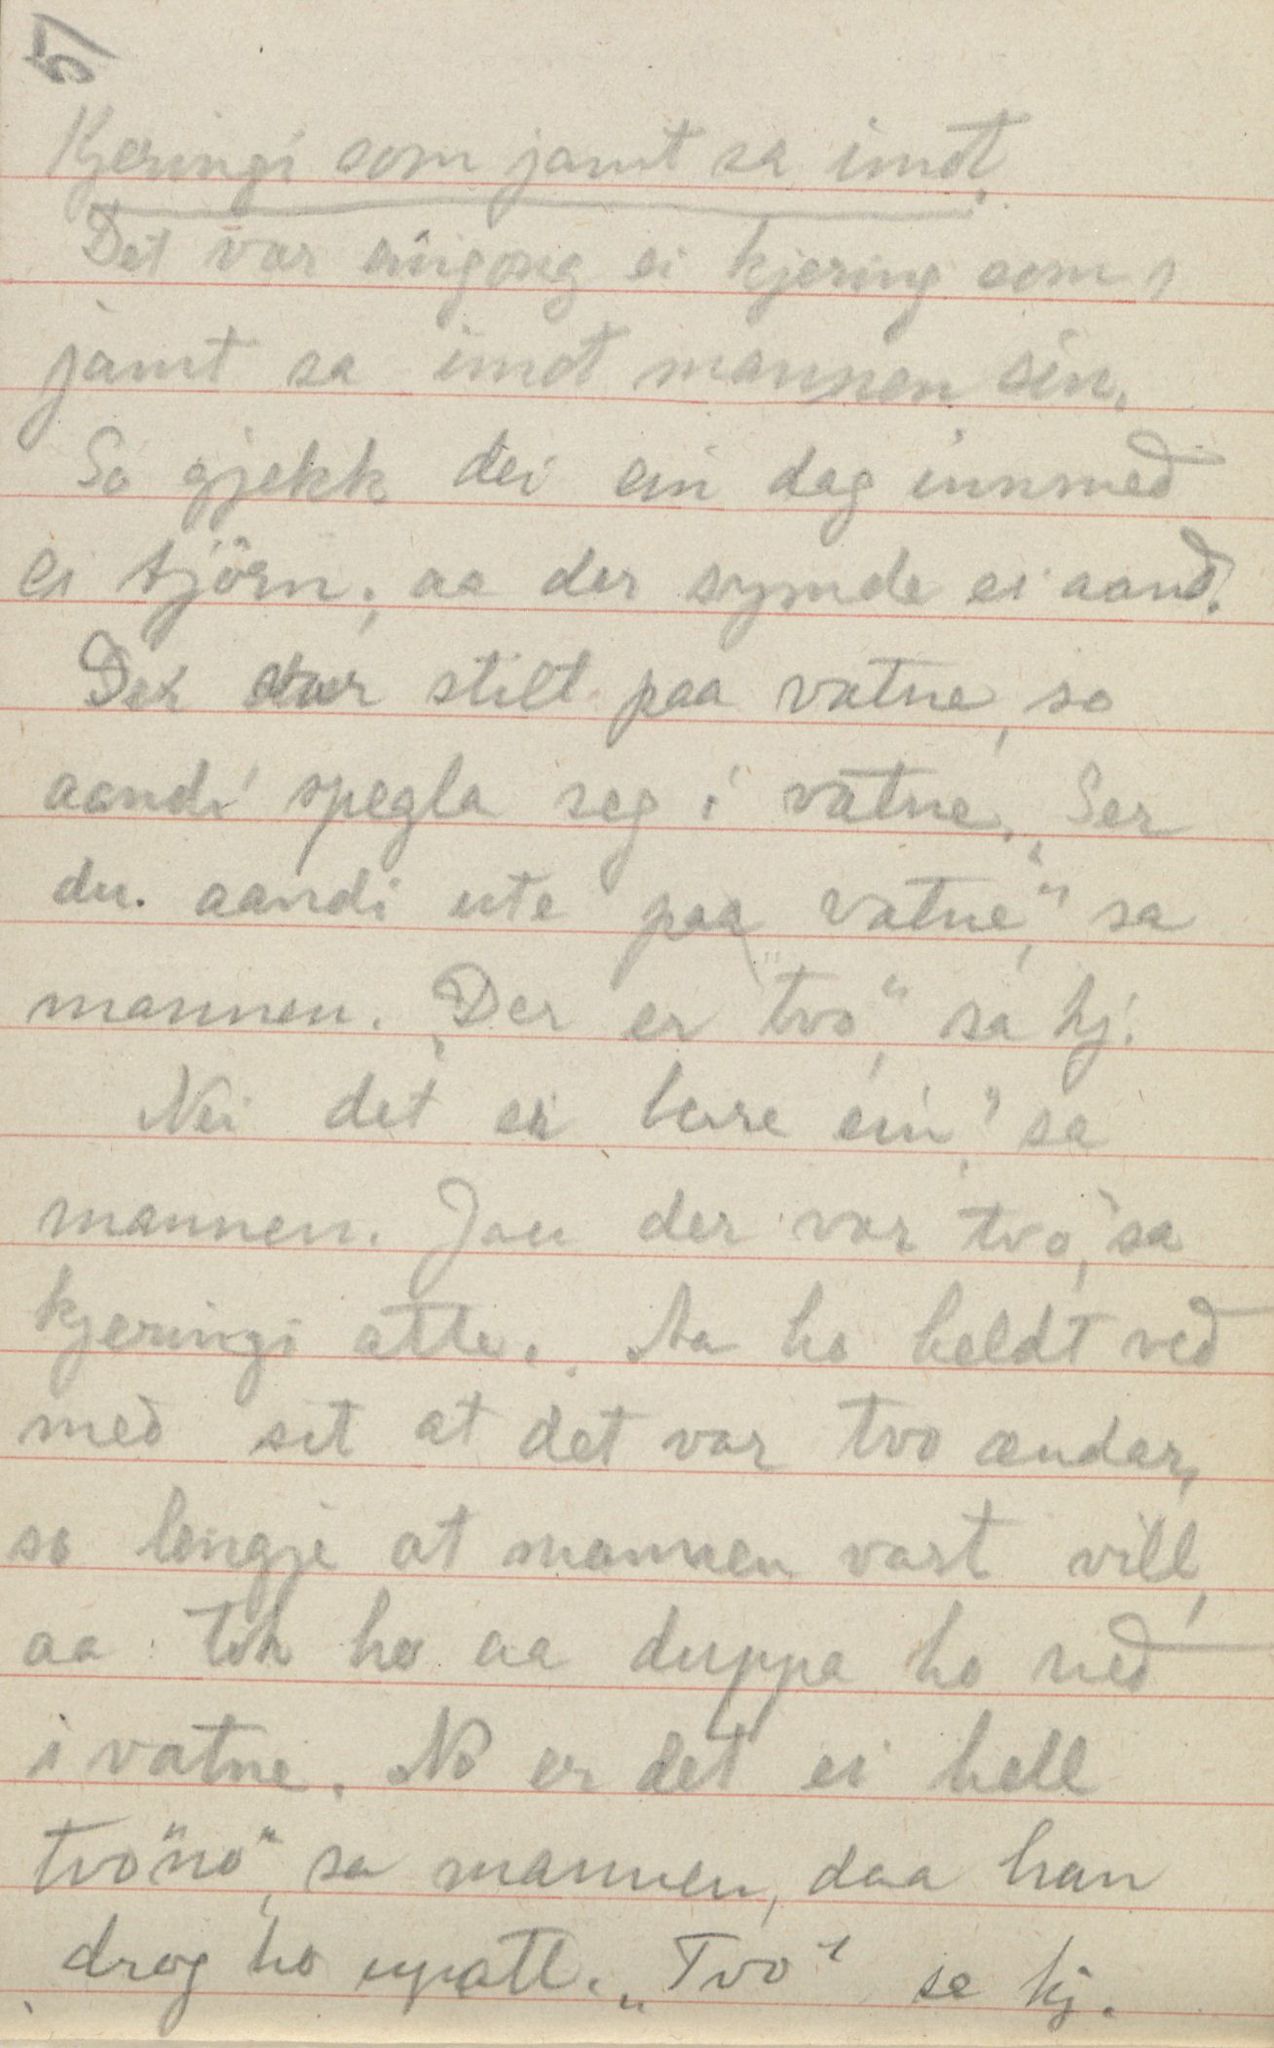 57
Kjeringi som jamt sa imot.
Det var eingong ei kjering som
jamt sa imot mannen sin.
So gjekk dei ein dag innmed
ei tjörn; aa der symde ei aand.
Det var stilt paa vatne, so
aandi spegla seg i vatne. „Ser
du aandi ute paa vatne," sa
mannen. „Der er "tvo," sa kj.
Nei det er berre ein," sa
mannen. Jau der var tvo," sa
kjeringi atte. Aa ho heldt ved
med sit at det var tvo ændar,
so lengje at mannen vart vill,
aa tok ho aa duppa ho ned
i vatne. No er det ei hell
tvo "no", sa mannen, daa han
drog ho uppatt. „Tvo" sa kj.